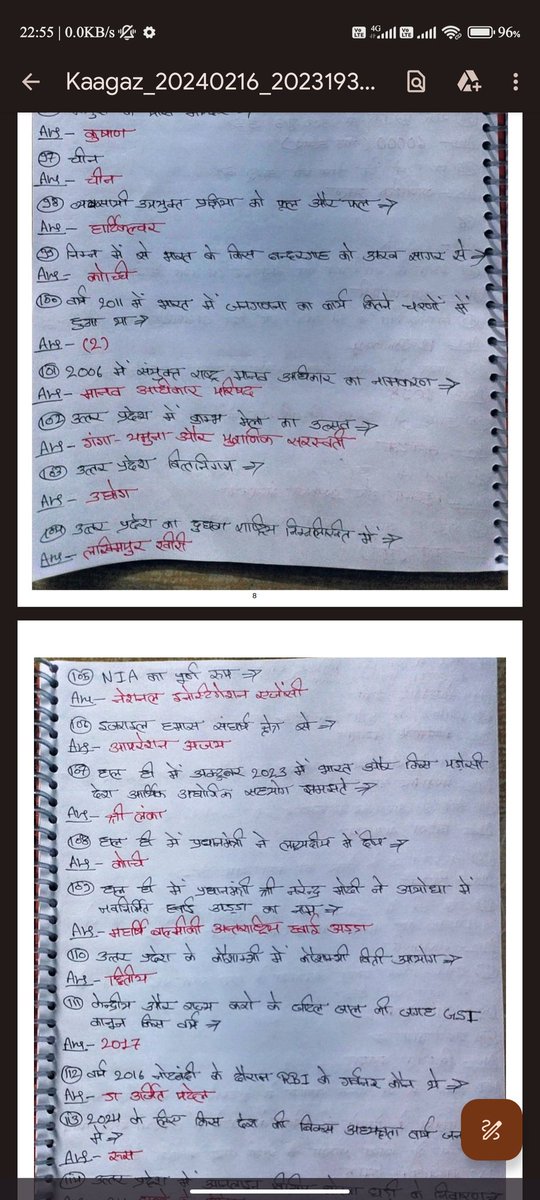 22:55 | 0.0KB/s
4G
96%
Kaagaz_20240216_2023193...
Ans - कुषाण
97 चीन
Ans - चीन
98 व्यवसायी उपयुक्त प्रक्रिया को फूल और फल →
Ans - हार्टिकल्चर
99 निम्न में से भारत के किस बन्दरगाह को अरब सागर से →
Ans - कोच्ची
100 वर्ष 2011 में भारत में जनगणना का कार्य कितने चरणों में
हुआ था →
Ans - (2)
101 2006 में संयुक्त राष्ट्र मानव अधिकार का नामकरण →
Ans - मानव अधिकार परिषद
102 उत्तर प्रदेश में कुम्भ मेला का उत्सव →
Ans - गंगा - यमुना और पुराणिक सरस्वती
103 उत्तर प्रदेश वितनिगम →
Ans - उद्योग
104 उत्तर प्रदेश का दुधवा राष्ट्रिय निम्नलिखित में →
Ans - लखिमपुर खीरी
8
105 NIA का पूर्ण रूप →
Ans - नेशनल इनवेस्टिगेशन एजेंसी
106 इजराइल हमास संघर्ष क्षेत्र से →
Ans - आपरेशन अजय
107 हाल ही में अक्टूबर 2023 में भारत और किस पडोसी
देश आर्थिक औद्योगिक सहयोग समझौते →
Ans - श्री लंका
108 हाल ही में प्रधानमंत्री ने लक्षद्वीप में द्वीप →
Ans - कोच्चि
109 हाल ही में प्रधानमंत्री श्री नरेन्द्र मोदी ने अयोध्या में
नवनिर्मित हवाई अड्डा का नाम →
Ans - महर्षि बाल्मीकी अन्तराष्ट्रिय हवाई अड्डा
110 उत्तर प्रदेश के कौशाम्बी में कौशाम्बी वित्ती आयोग →
Ans - द्वितीय
111 केन्द्रीय और राज्य करो के जटिल जाल की जगह GST
कानून किस वर्ष →
Ans - 2017
112 वर्ष 2016 नोटबंदी के दौरान RBI के गर्वनर कौन थे →
Ans - डा उर्जित पटेल
113 2024 के लिए किस देश की ब्रिक्स अध्यक्षता वर्ष
में →
Ans - रूस
114 उत्तर प्रदेश में